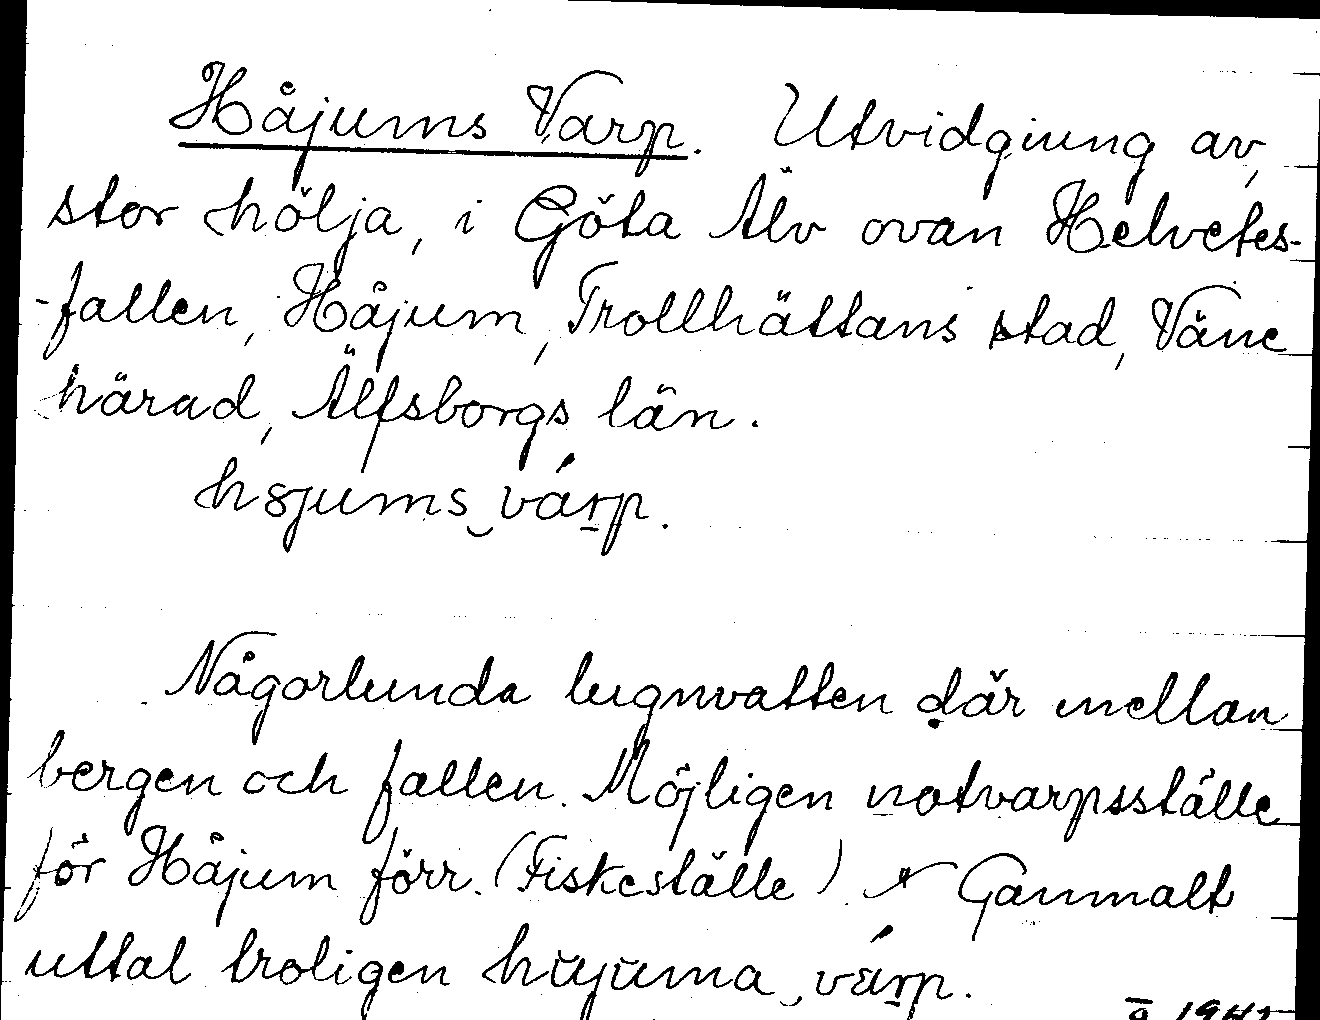 Håjums Varp. Utvidgning av,
stor hölja, i Göta Älv ovan Helvetes-
-fallen, Håjum, Trollhättans stad, Väne
härad, Älfsborgs län.
h8jums‿várp.
Någorlunda lugnvatten där mellan
bergen och fallen. Möjligen notvarpsställe
för Håjum förr. (Fiskeställe). Gammalt
uttal troligen hŭjŭma‿várp.